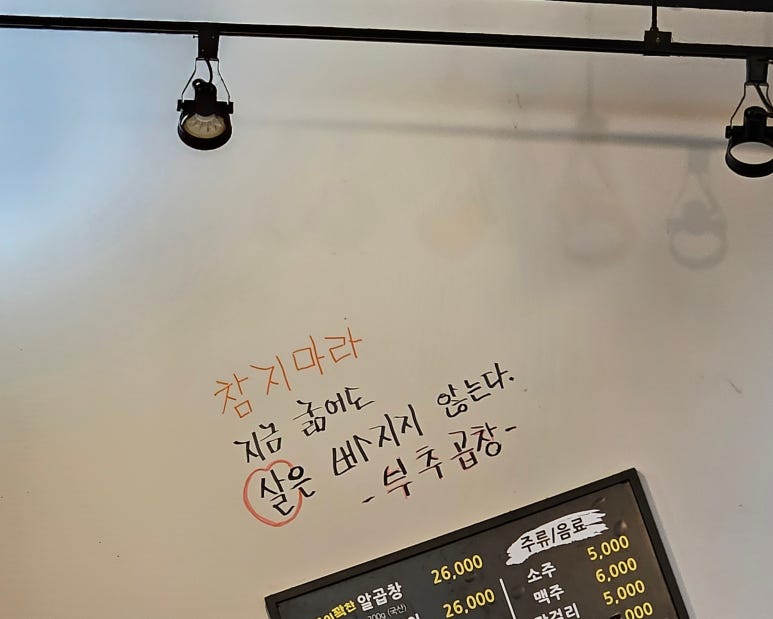 참지마라
지금 굶어도
살은 빠지지 않는다.
-부추곱창-
알곱창 26,000
200g (국산)
26,000
주류/음료
소주 5,000
맥주 6,000
5,000